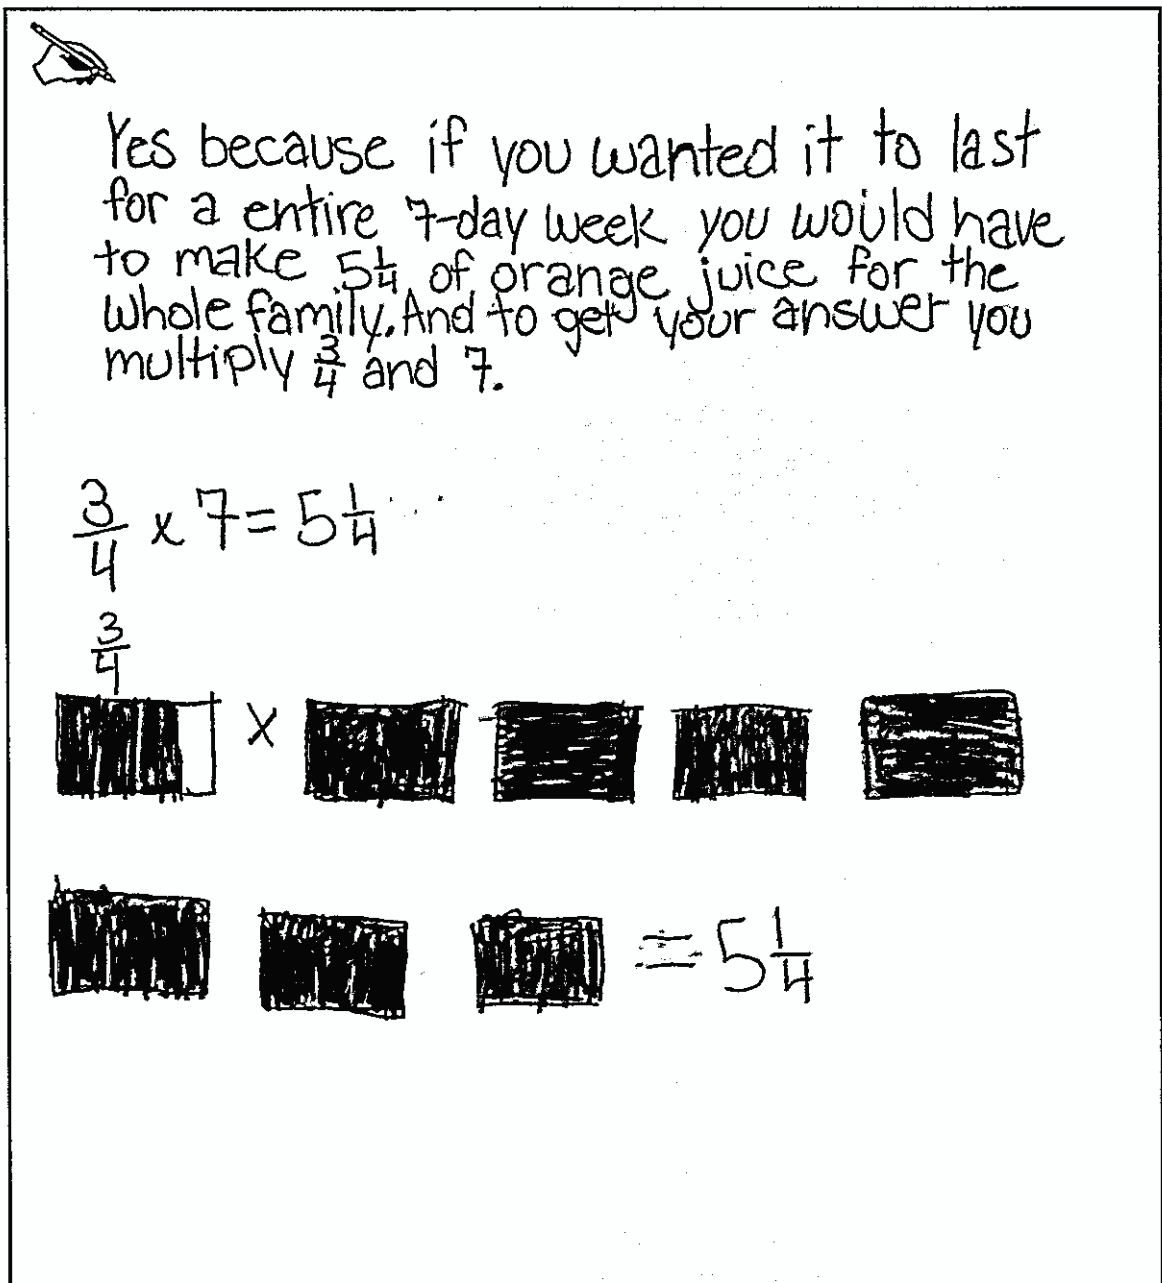 Yes because if you wanted it to last
for a entire 7-day week you would have
to make 5 1/4 of orange juice for the
whole family. And to get your answer you
multiply 3/4 and 7.
3/4 x 7 = 5 1/4
3/4
x
= 5 1/4